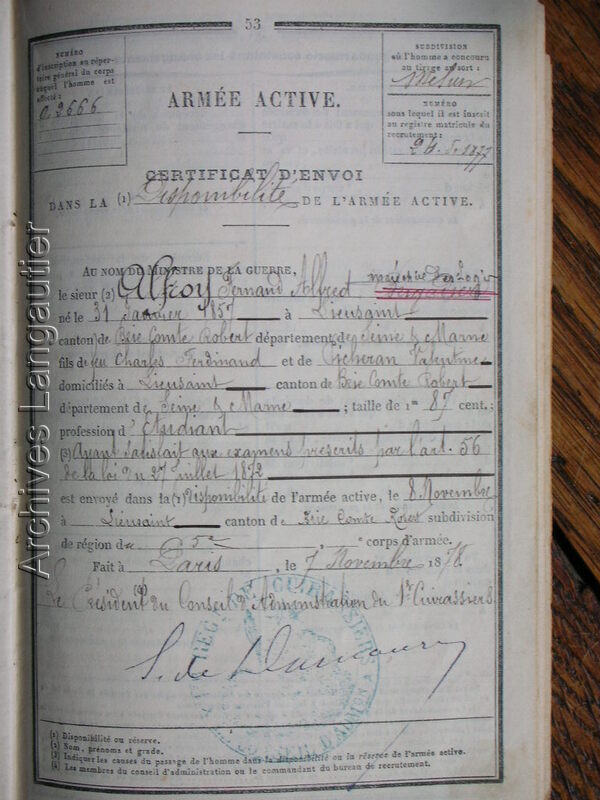 53
NUMÉRO
d'inscription au réper-
toire général du corps
auquel l'homme est
affecté :
2666
SUBDIVISION
où l'homme a concouru
au tirage au sort :
Melun
NUMÉRO
sous lequel il est inscrit
au registre matricule du
recrutement :
1877
ARMÉE ACTIVE.
CERTIFICAT D'ENVOI
DANS LA (1) Disponibilité DE L'ARMÉE ACTIVE.
AU NOM DU MINISTRE DE LA GUERRE, maréchal des Logis
le sieur (2) Alfroy Fernand Alfred
né le 31 Janvier 1857 à Lieusaint
canton de Brie Comte Robert département de Seine & Marne
fils de feu Charles Ferdinand et de Valentine
domiciliés à Lieusaint canton de Brie Comte Robert
département de Seine & Marne ; taille de 1m 87 cent. ;
profession d'Etudiant
(3) Ayant satisfait aux examens prescrits par l'art. 56
de la loi du 27 juillet 1872
est envoyé dans la (1) Disponibilité de l'armée active, le 8 Novembre
à Lieusaint canton de Brie Comte Robert subdivision
de région de 5e corps d'armée.
Fait à Paris, le 7 Novembre 1878.
(4)
Le Président du Conseil d'Administration du Cuirassiers
S. de
CUIRASSIERS
(1) Disponibilité ou réserve.
(2) Nom, prénoms et grade.
(3) Indiquer les causes du passage de l'homme dans la disponibilité ou la réserve de l'armée active.
(4) Les membres du conseil d'administration ou le commandant du bureau de recrutement.
Archives Langautier